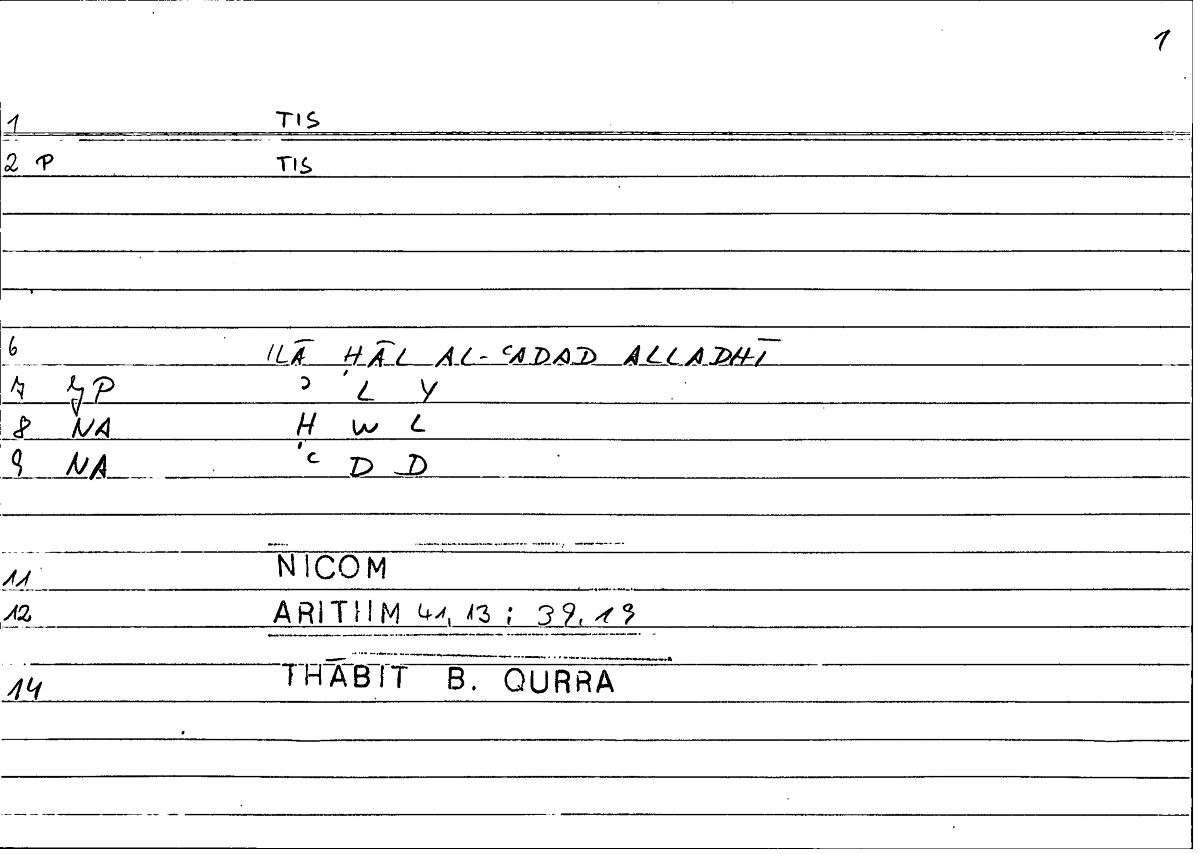 1
1 TIS
2 P TIS
6 ILĀ ḤĀL AL-ʿADAD ALLADHĪ
7 P ʾ L Y
8 NA Ḥ W L
9 NA ʿ D D
11 NICOM
12 ARITHM 41, 13 ; 39, 19
14 THĀBIT B. QURRA